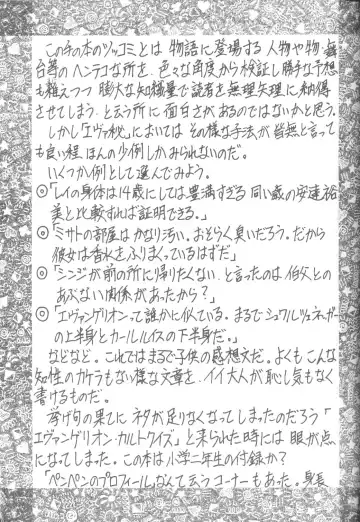 この手の本のツッコミとは、物語に登場する人物や物、舞
台等のヘンテコな所を、色々な角度から検証し勝手な予想
も植えつつ膨大な知識量で読者を無理矢理に納得
させてしまう、と云う所に面白さがあるのではないかと思う。
しかし「エヴァ秘」においてはその様な手法が皆無と言って
も良い程ほんの少例しかみられないのだ。
いくつか例として選んでみよう。
◎「レイの身体は14歳にしては豊満すぎる 同い歳の安達祐
実と比較すれば証明できる。」
◎「ミサトの部屋はかなり汚い。おそらく臭いだろう。だから
彼女は香水をふりまくっているはずだ」
◎「シンジが前の所に帰りたくない、と言ったのは伯父との
あぶない関係があったから?」
◎「エヴァンゲリオンって誰かに似ている。まるでシュワルツェネッガー
の上半身とカールルイスの下半身だ。」
などなど。これではまるで子供の感想文だ。よくもこんな
知性のカケラもない様な文章を、イイ大人が恥し気もなく
書けるものだ。
挙げ句の果てにネタが足りなくなってしまったのだろう「
エヴァンゲリオン・カルトクイズ」と来られた時には眼が点
になってしまった。この本は小学二年生の付録か?
「ペンペンのプロフィール」なんて云うコーナーもあった。身長